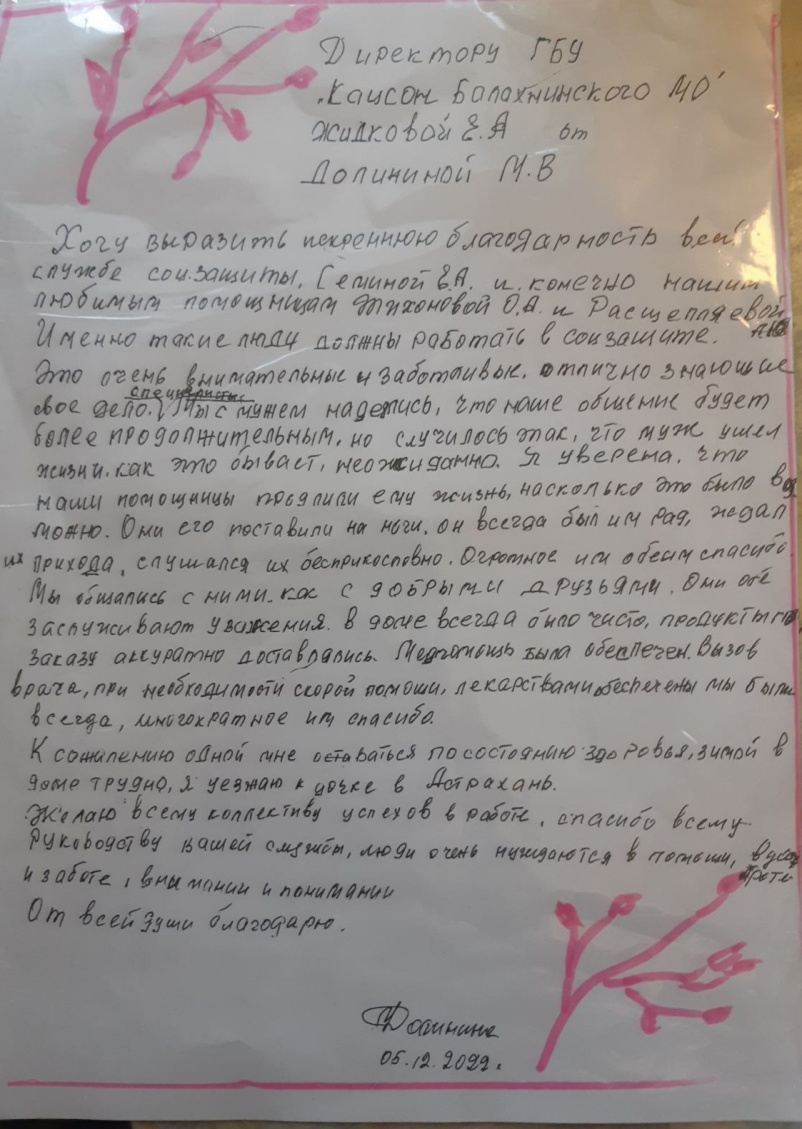 Директору ГБУ
"Кацсон Балахнинского МО"
Жидковой Е.А от
Долининой М.В
Хочу выразить искреннюю благодарность всей
службе соцзащиты, Семиной Е.А. и конечно нашим
любимым помощницам Тихоновой О.А. и Расщепляевой
Именно такие люди должны работать в соцзащите.
Это очень внимательные и заботливые, отлично знающие
специалисты
свое дело. Мы с мужем надеялись, что наше общение будет
более продолжительным, но случилось так, что муж ушел
жизни, как это бывает, неожиданно. Я уверена, что
наши помощницы продлили ему жизнь, насколько это было воз
можно. Они его поставили на ноги, он всегда был им рад, ждал
их прихода, слушался их бесприкословно. Огромное им обеим спасибо.
Мы общались с ними как с добрыми друзьями. Они обе
заслуживают уважения. В доме всегда было чисто, продукты по
заказу аккуратно доставлялись. Медпомощь была обеспечен. Вызов
врача, при необходимости скорой помощи, лекарствами обеспечены мы были
всегда, многократное им спасибо.
К сожалению одной мне оставаться по состоянию здоровья, зимой в
доме трудно, я уезжаю к дочке в Астрахань.
Желаю всему коллективу успехов в работе, спасибо всему
руководству вашей службы, люди очень нуждаются в помощи,
и заботе, внимании и понимании
От всей души благодарю.
Долинина
05.12.2022г.